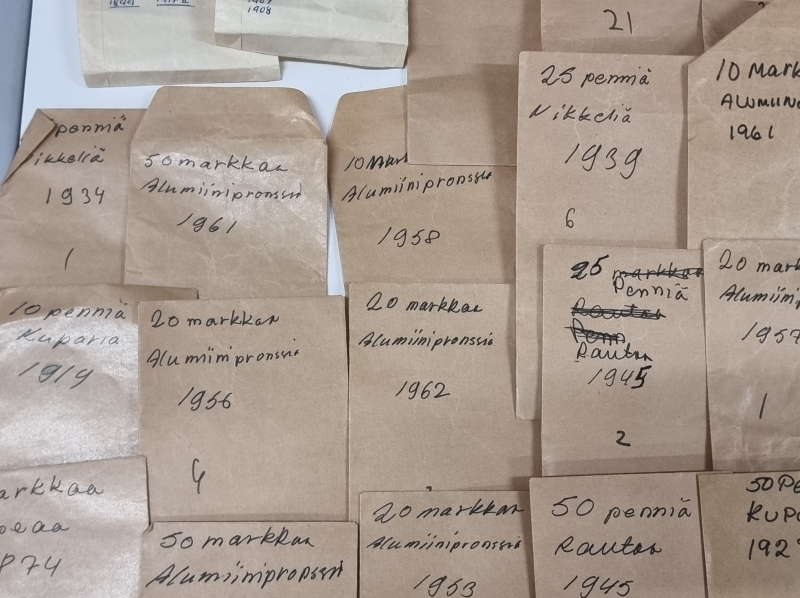 1908
21
25 penniä
Nikkeliä
1939
6
10 Mark
ALUMIINI
1961
penniä
ikkeliä
1934
1
50 markkaa
Alumiinipronssii
1961
10 Mark
Alumiinipronssii
1958
25 markkaa
Penniä
Rautaa
Penn
Rautaa
1945
2
20 mark
Alumiinip
1957
1
10 penniä
Kuparia
1919
20 markkaa
Alumiinipronssia
1956
4
20 markkaa
Alumiinipronssia
1962
arkkaa
peaa
1974
50 markkaa
Alumiinipronssii
20 markkaa
Alumiinipronssia
1953
50 penniä
Rautaa
1945
50 Pe
KUPA
192